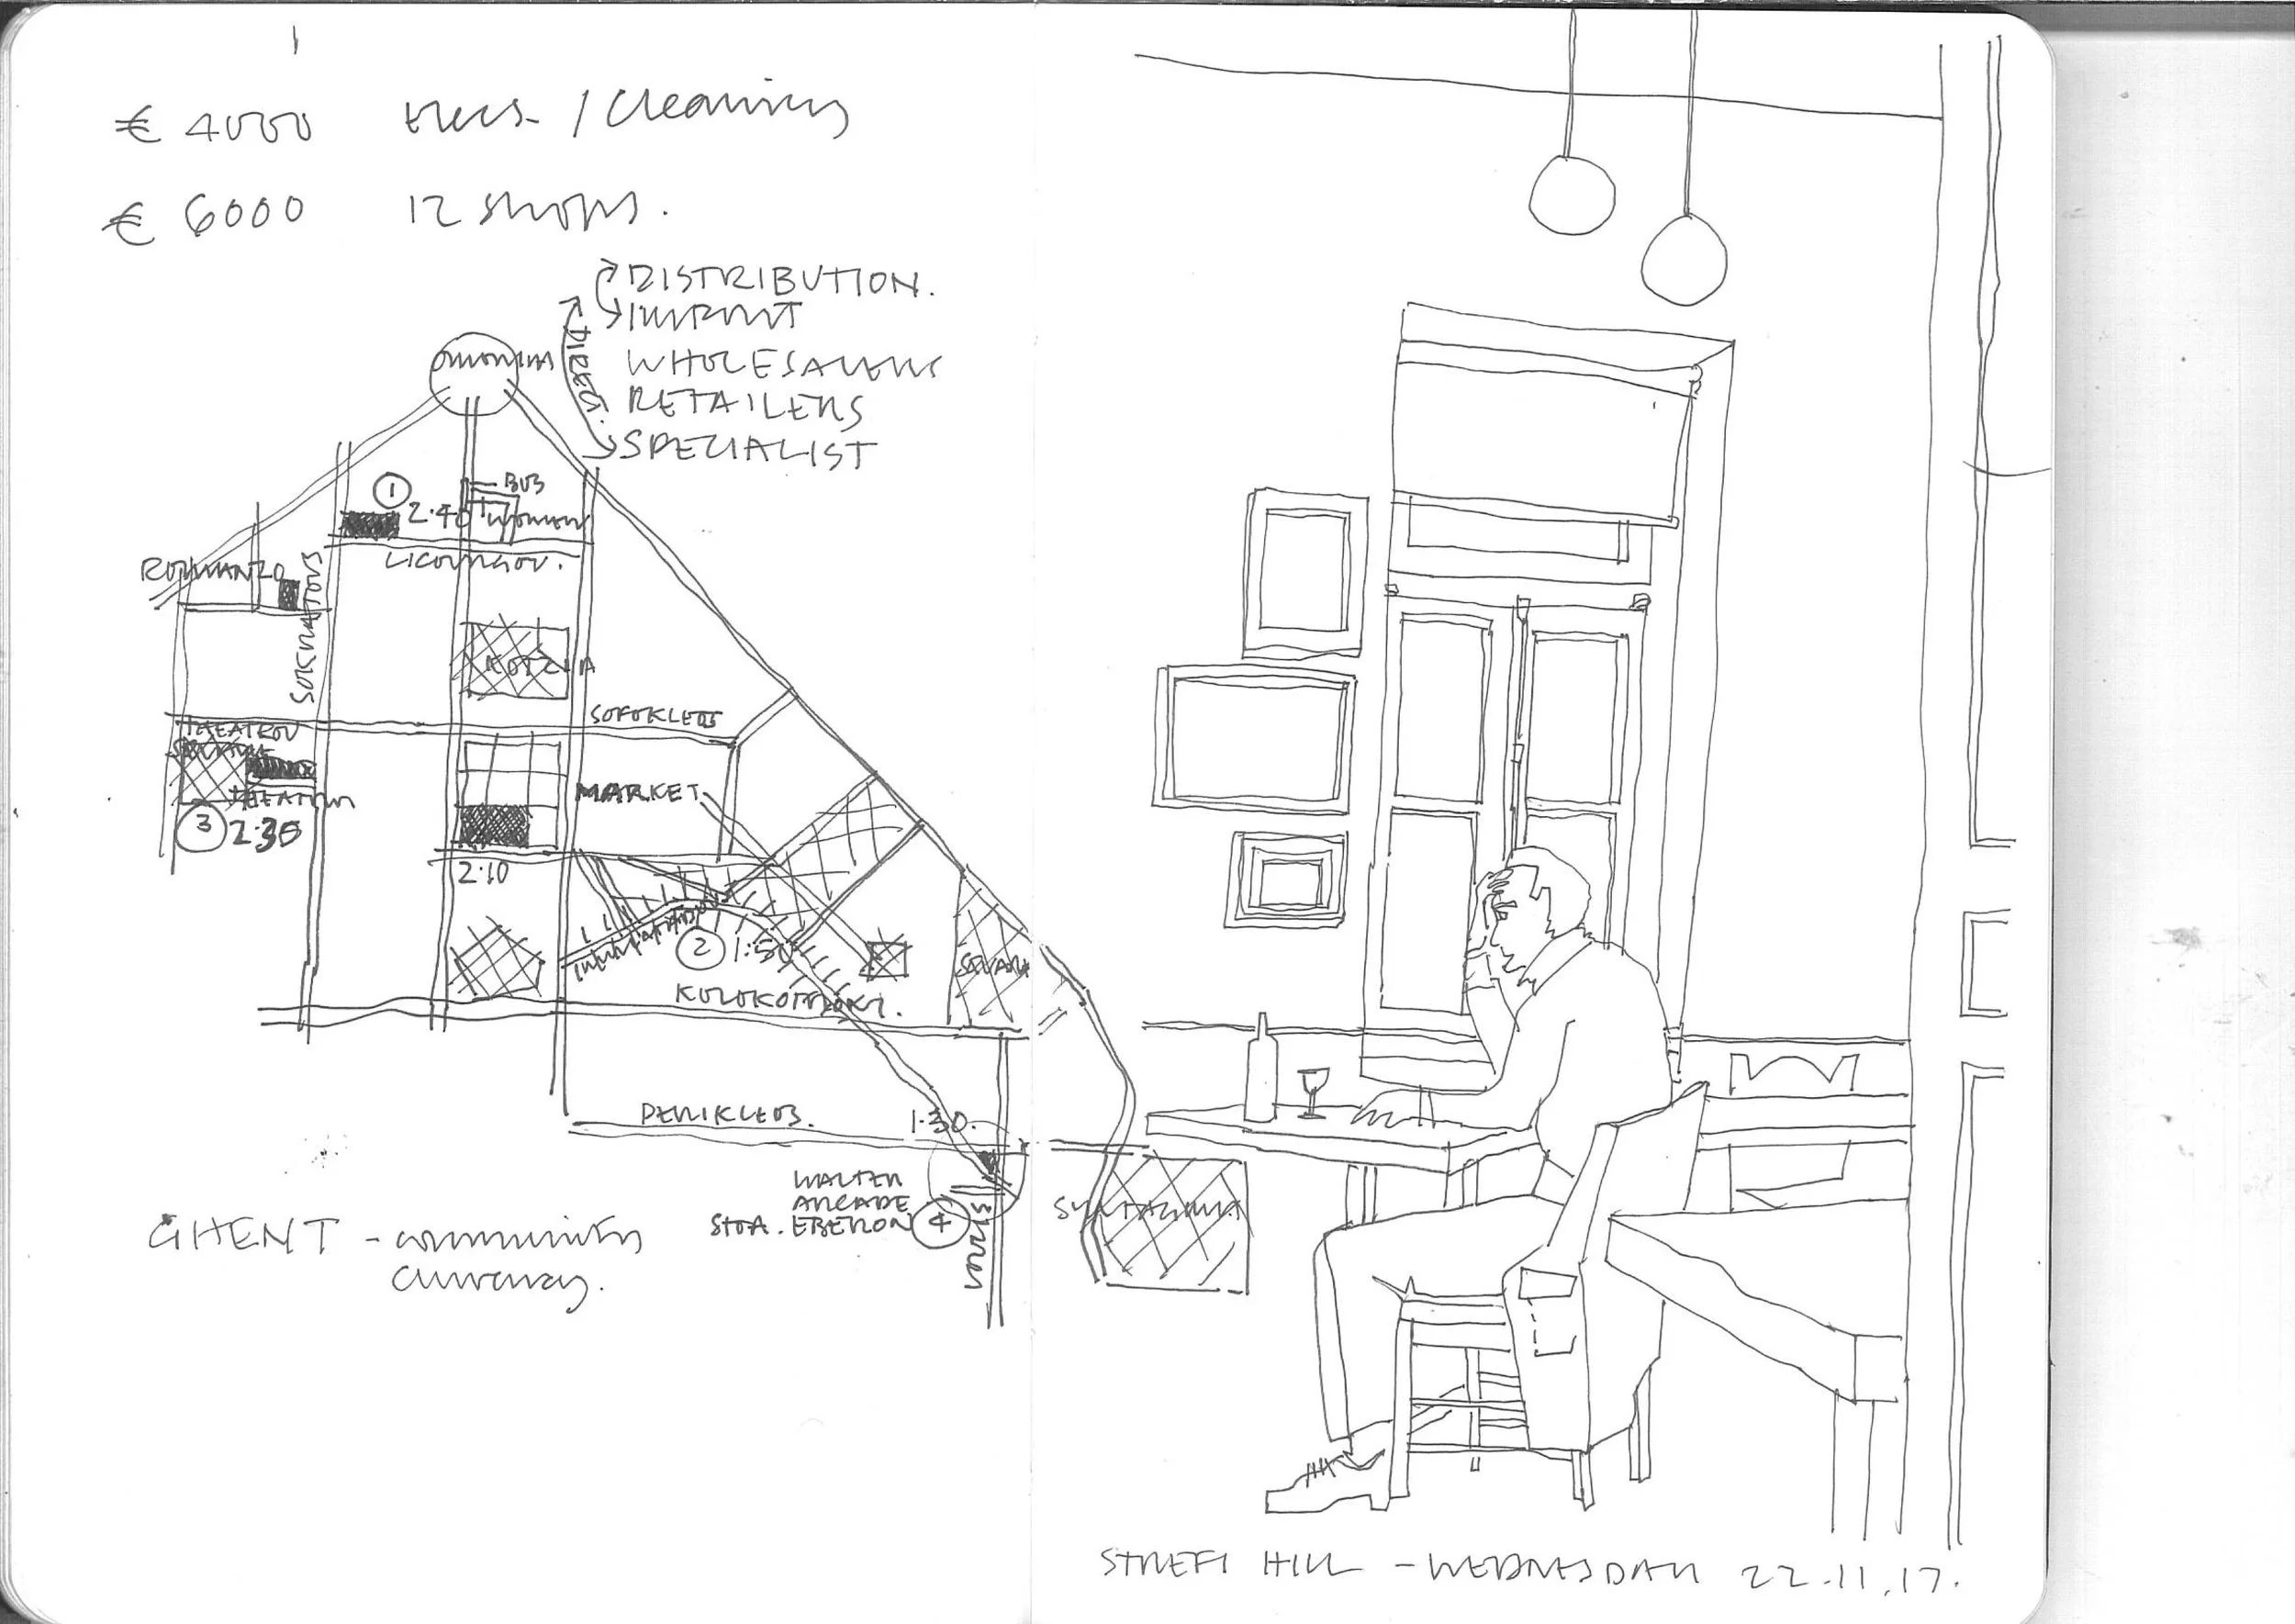 € 4000 elecs. / Cleaning
€ 6000 12 shops.
DISTRIBUTION.
IMPORT
WHOLESALERS
RETAILERS
SPECIALIST
DIRECT.
OMONIA
1
BUS
2.40 women
LICOURGOU.
ROMANZO
SOKRATOUS
KOTZIA
SOFOKLEOUS
THEATROU
SQUARE
THEATROU
3 2.35
MARKET
2.10
2 1:50
SQUARE
KOLOKOTRONI.
PERIKLEOUS.
1.30.
ARCADE
STOA. EBERON 4
SYNTAGMA
GHENT - community
currency.
STREFI HILL - WEDNESDAY 22.11.17.